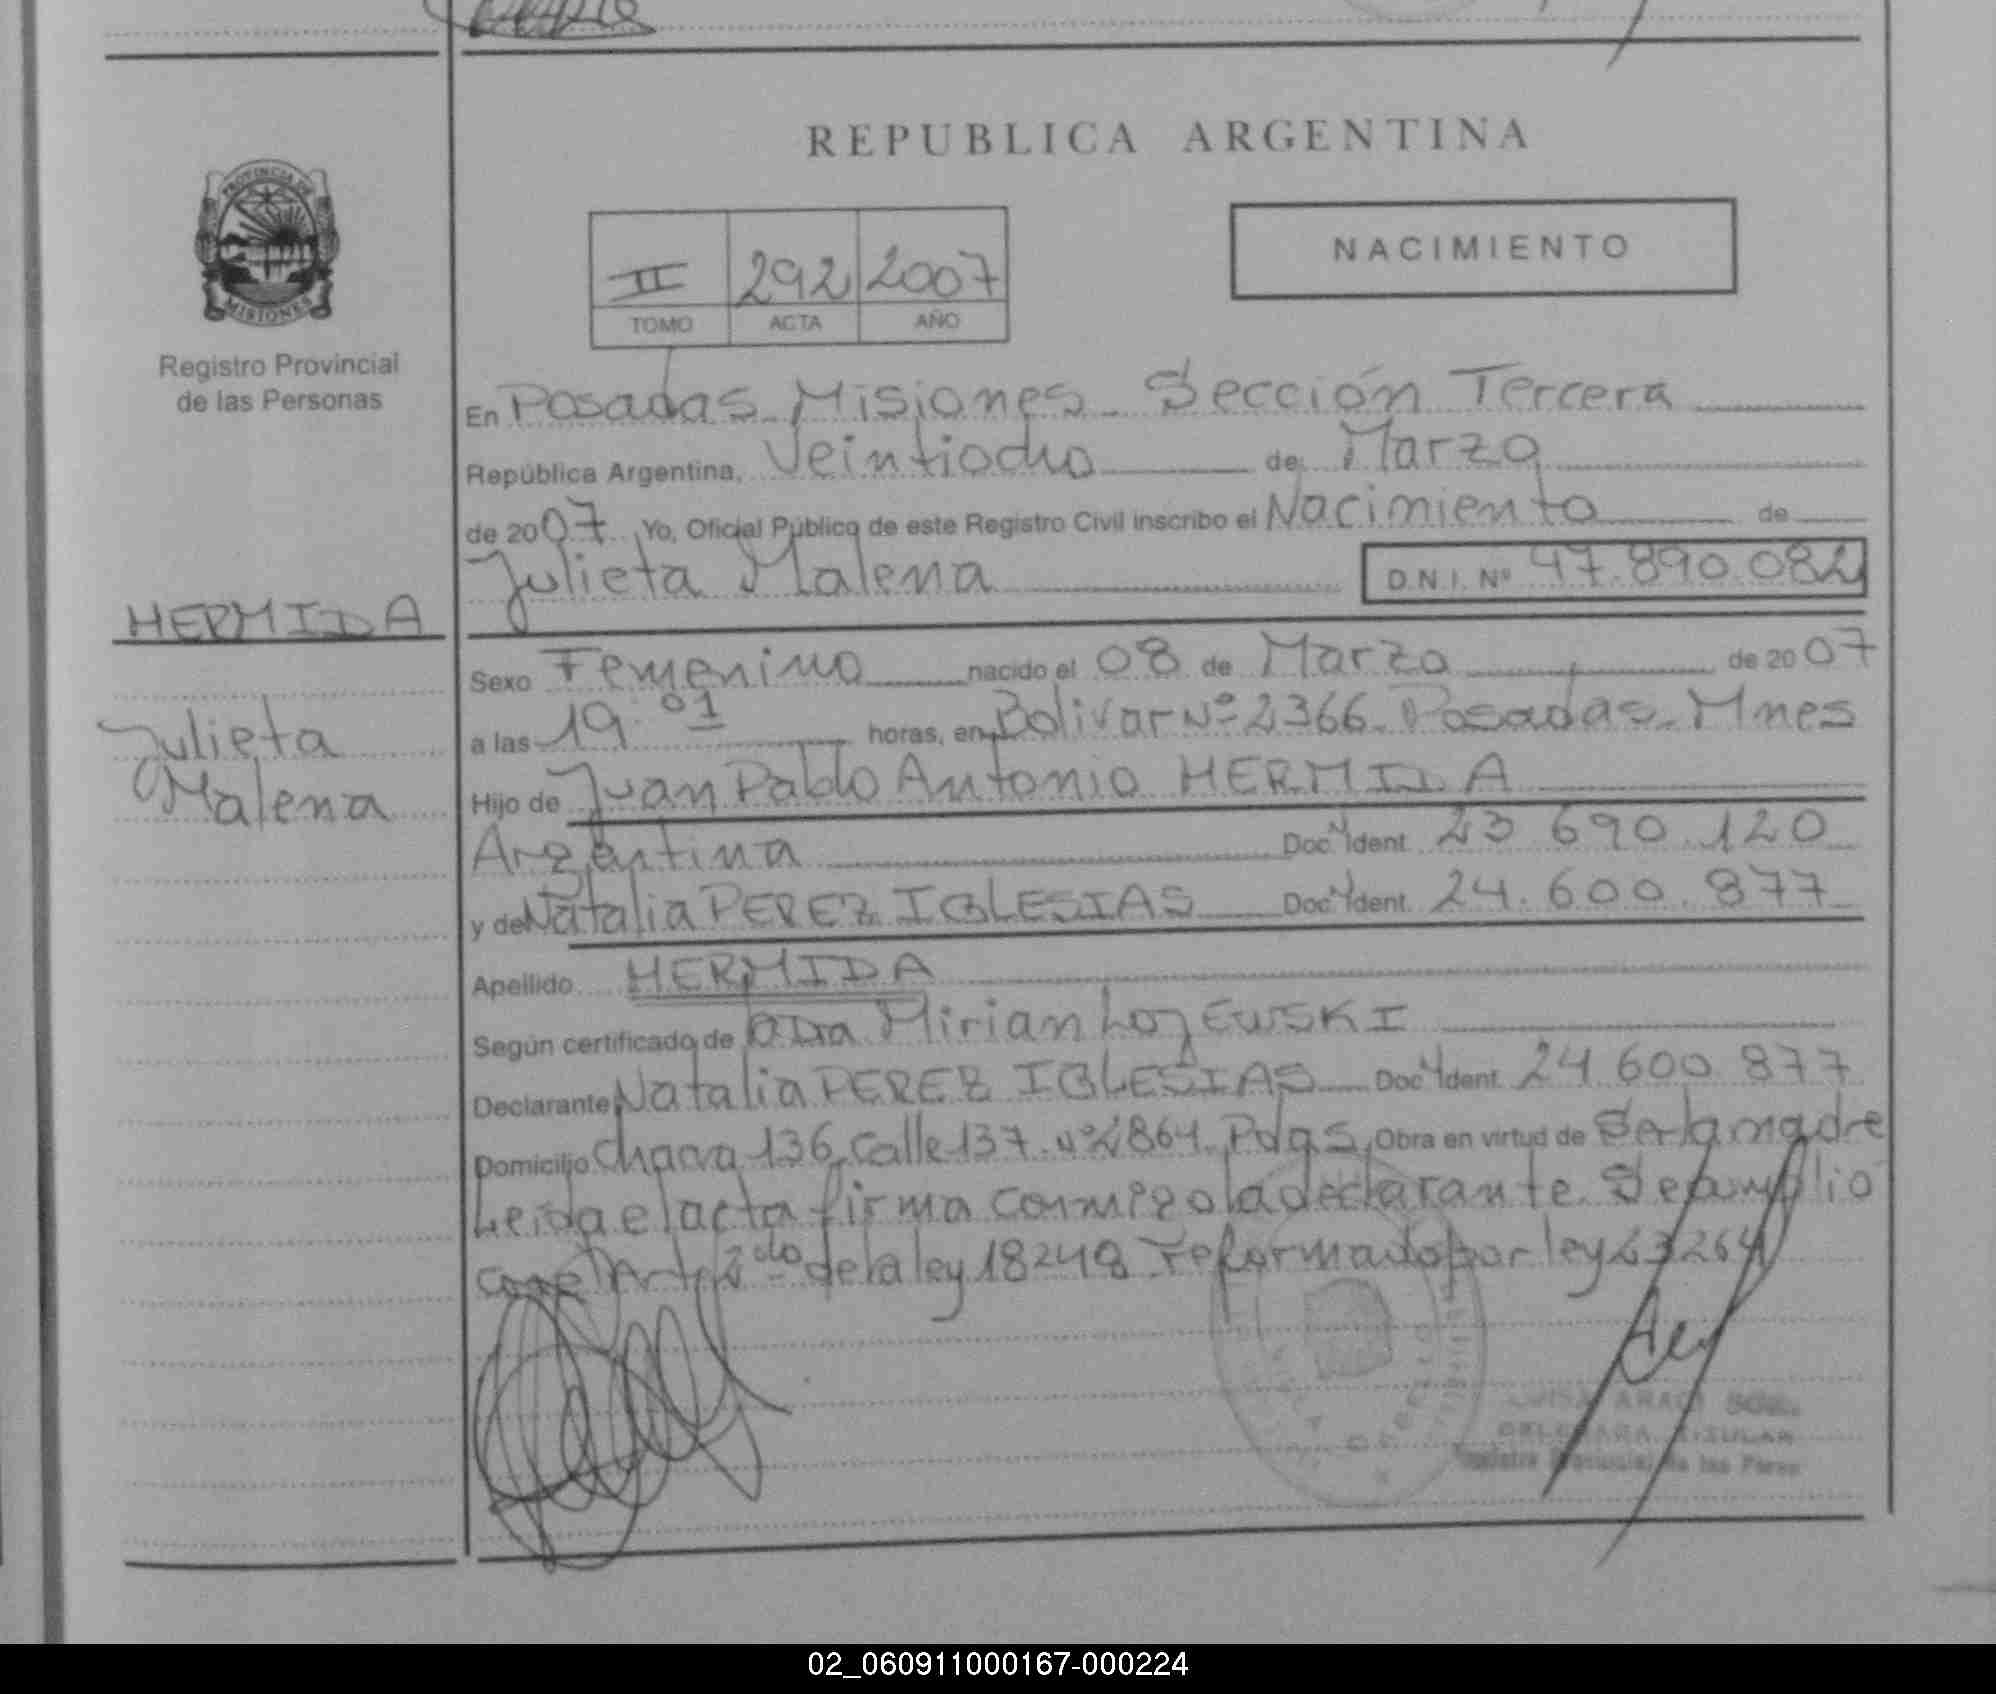 REPUBLICA ARGENTINA
PROVINCIA DE
MISIONES
Registro Provincial
de las Personas
II 292 2007
TOMO ACTA AÑO
NACIMIENTO
En Posadas Misiones Sección Tercera
República Argentina, Veintiocho de Marzo
de 2007 Yo, Oficial Público de este Registro Civil inscribo el Nacimiento de
Julieta Malena D.N.I. Nº 47.890.082
HERMIDA
Julieta
Malena
Sexo Femenino nacido el 08 de Marzo de 2007
a las 19.01 horas, en Bolivar Nº 2366 Posadas Mnes
Hijo de Juan Pablo Antonio HERMIDA
Argentina Doc. Ident. 23 690.120
y de Natalia PEREZ IGLESIAS Doc. Ident. 24.600.877
Apellido HERMIDA
Según certificado de Dra Mirian LojEWSKI
Declarante Natalia PEREZ IGLESIAS Doc. Ident. 24 600 877
Domicilio Chacra 136 Calle 137 Nº 2864 Pdas Obra en virtud de Ser la madre
Leida el acta firma conmigo la declarante. Se cumplio
Art 2do de la ley 18248 reformado por ley 23264
LUISA
TITULAR
de las Pers
02_060911000167-000224